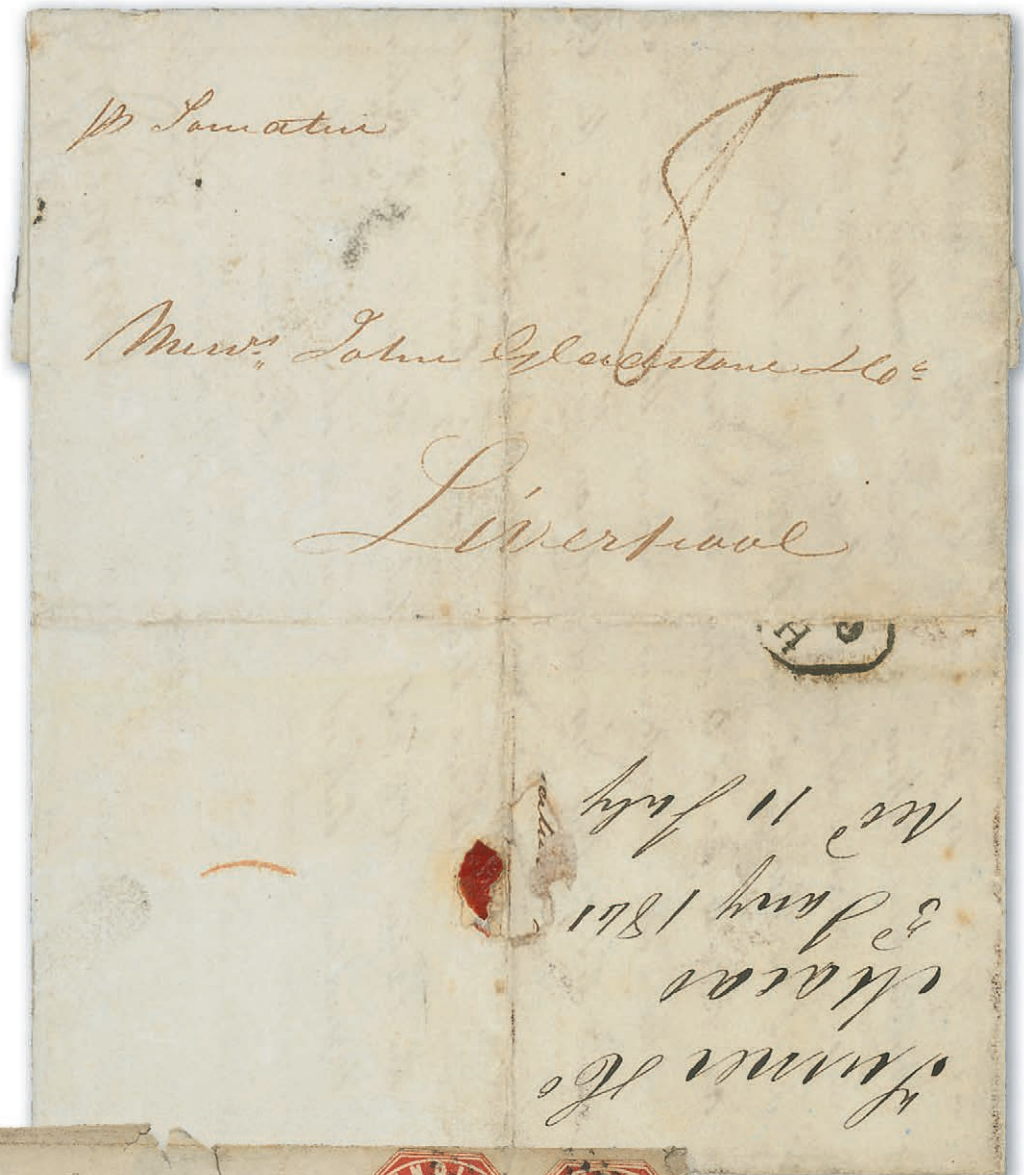 pr Somatin
8
Messrs. John Gladstone & Co.
Liverpool
Turner & Co
Macao
3d Jany 1841
Recd 11 July